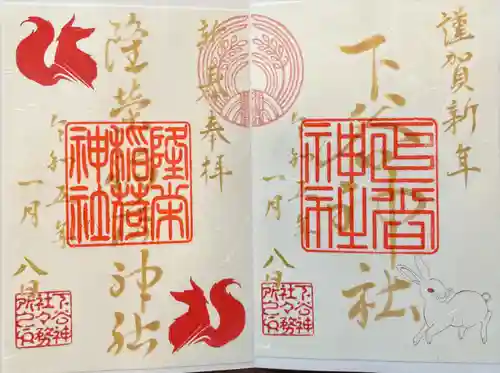 謹賀新年
下谷神社
令和五年
一月八日
下谷神社
下谷神社々務所之印
新春奉拝
隆榮稲荷神社
令和五年
一月八日
隆栄稲荷神社
下谷神社々務所之印